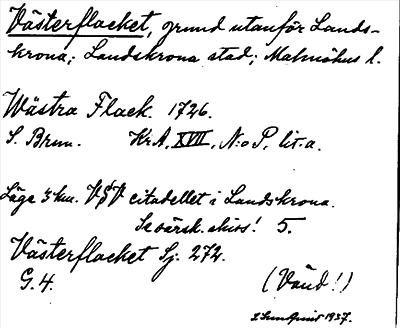 Västerflacket, grund utanför Lands-
krona; Landskrona stad; Malmöhus l.
Wästra Flack. 1726.
S. Brun. Kr.A. XVIII, N:o P, lit. a.
Läge 3 km. VSV citadellet i Landskrona.
Se värsk. skiss! 5.
Västerflacket Sj. 272.
G. 4. (Vänd!)
Sundquist 1937.